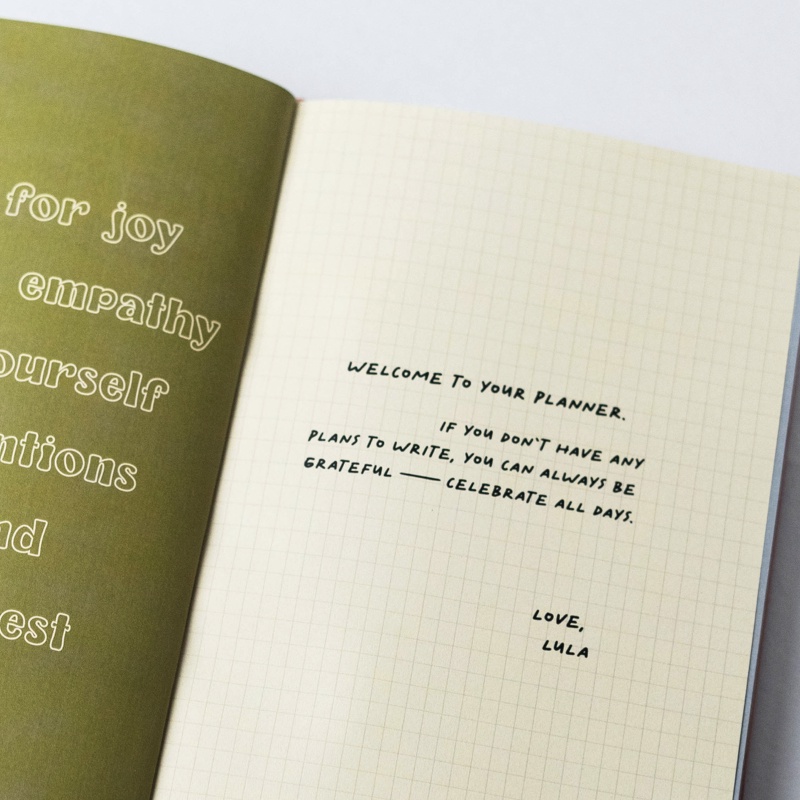 for joy
empathy
WELCOME TO YOUR PLANNER.
IF YOU DON'T HAVE ANY
PLANS TO WRITE, YOU CAN ALWAYS BE
GRATEFUL — CELEBRATE ALL DAYS.
LOVE,
LULA